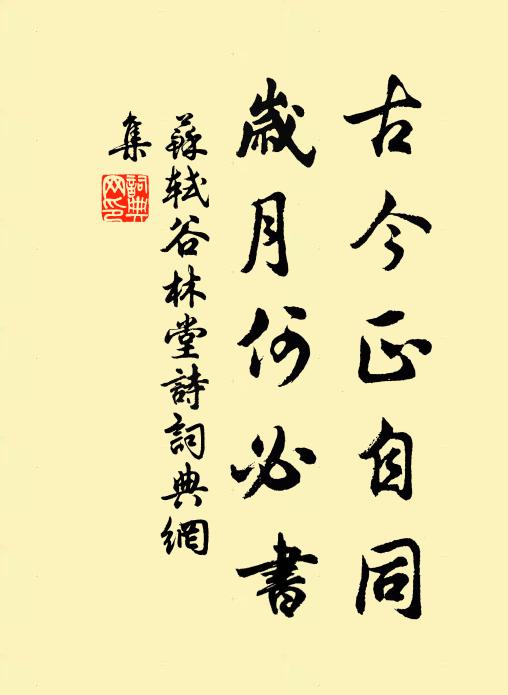 古今正自同
歲月何必書
蘇軾谷林堂詩詞典網
集
詞典網印